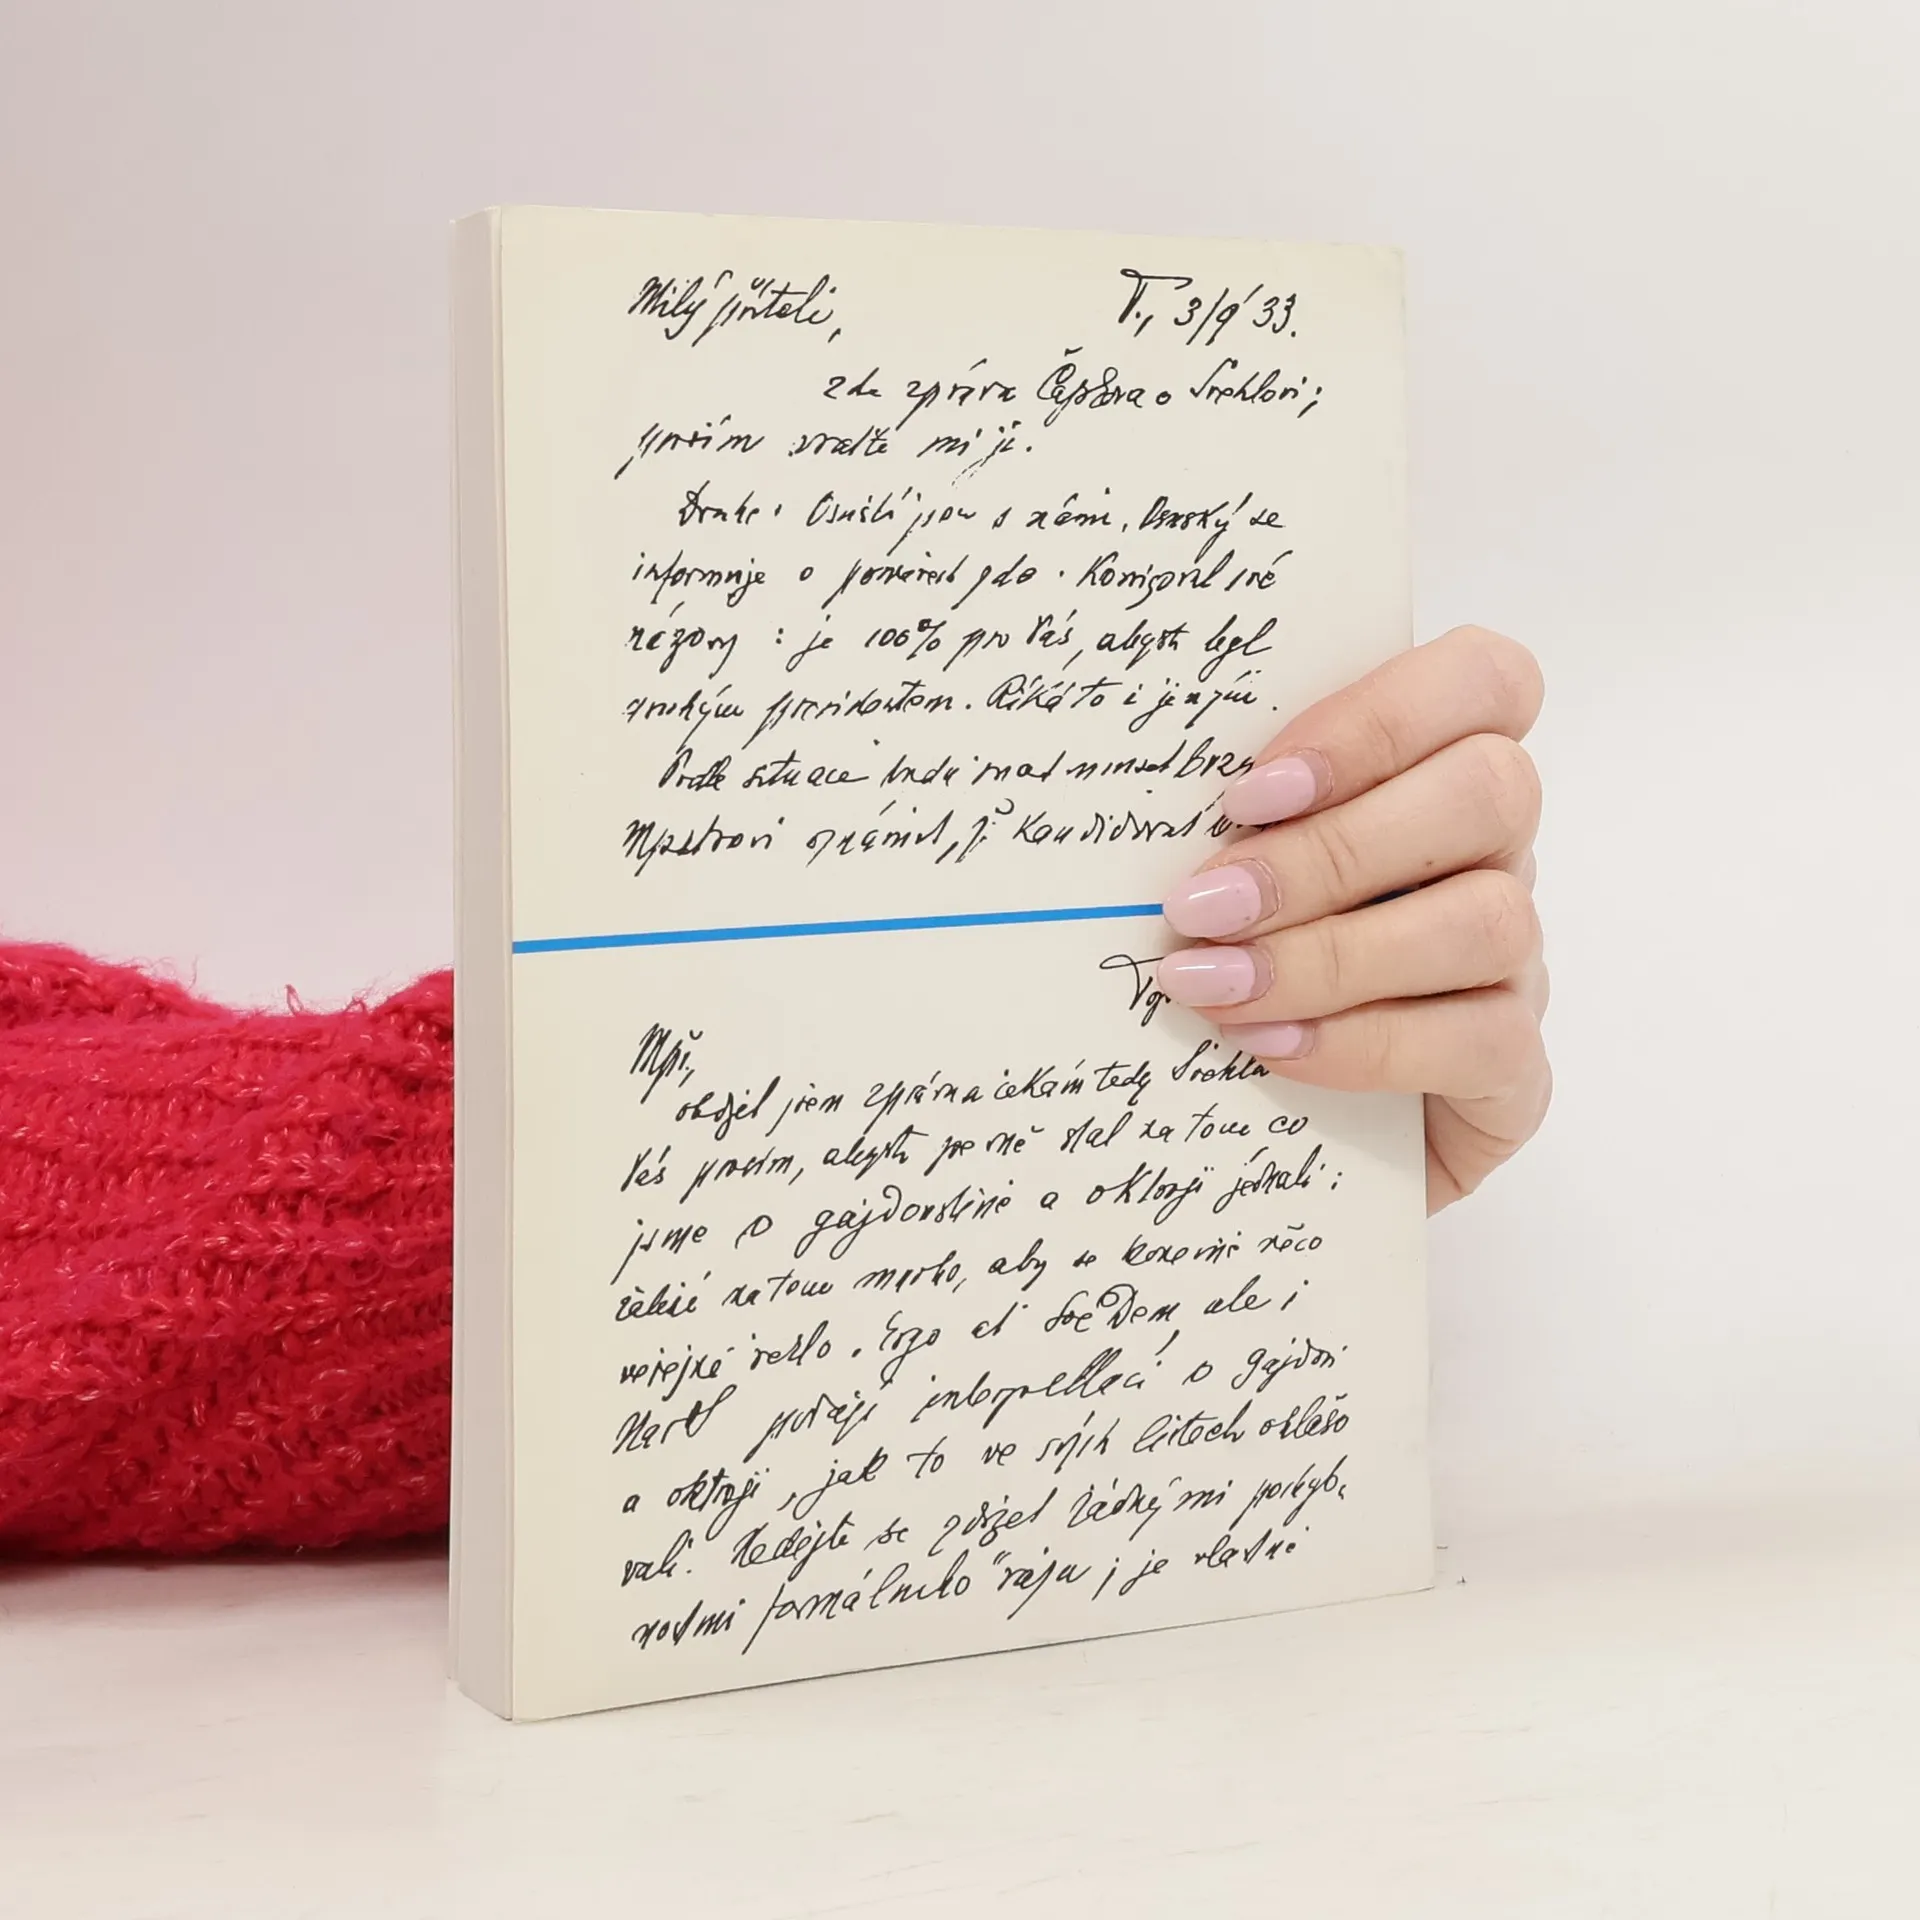 Milý příteli,
T., 3/9 33.
zde zpráva Čapkova o Švehlovi;
prosím vraťte mi ji.
Druhé: Osuští jsou s námi, Osuský se
informuje o poměrech zde. Korigoval své
názory: je 100% pro Vás, abyste byl
druhým presidentem. Říká to i jiným.
Podle situace budu snad muset brzy
oznámit, že kandidovat
Mpř.,
obdržel jsem zprávu a čekám tedy Švehla
Vás prosím, abyste pevně stál na tom co
jsme o gajdovštině a oktroji jednali;
záleží na tom mnoho, aby se konečně něco
veřejně řeklo. Ergo ať Soc Dem, ale i
podají interpellaci o gajdovi
a oktroji, jak to ve svých listech ohlašo
vali. Nedejte se zdržet žádnými pochyb.
nostmi formálního rázu; je vlastně